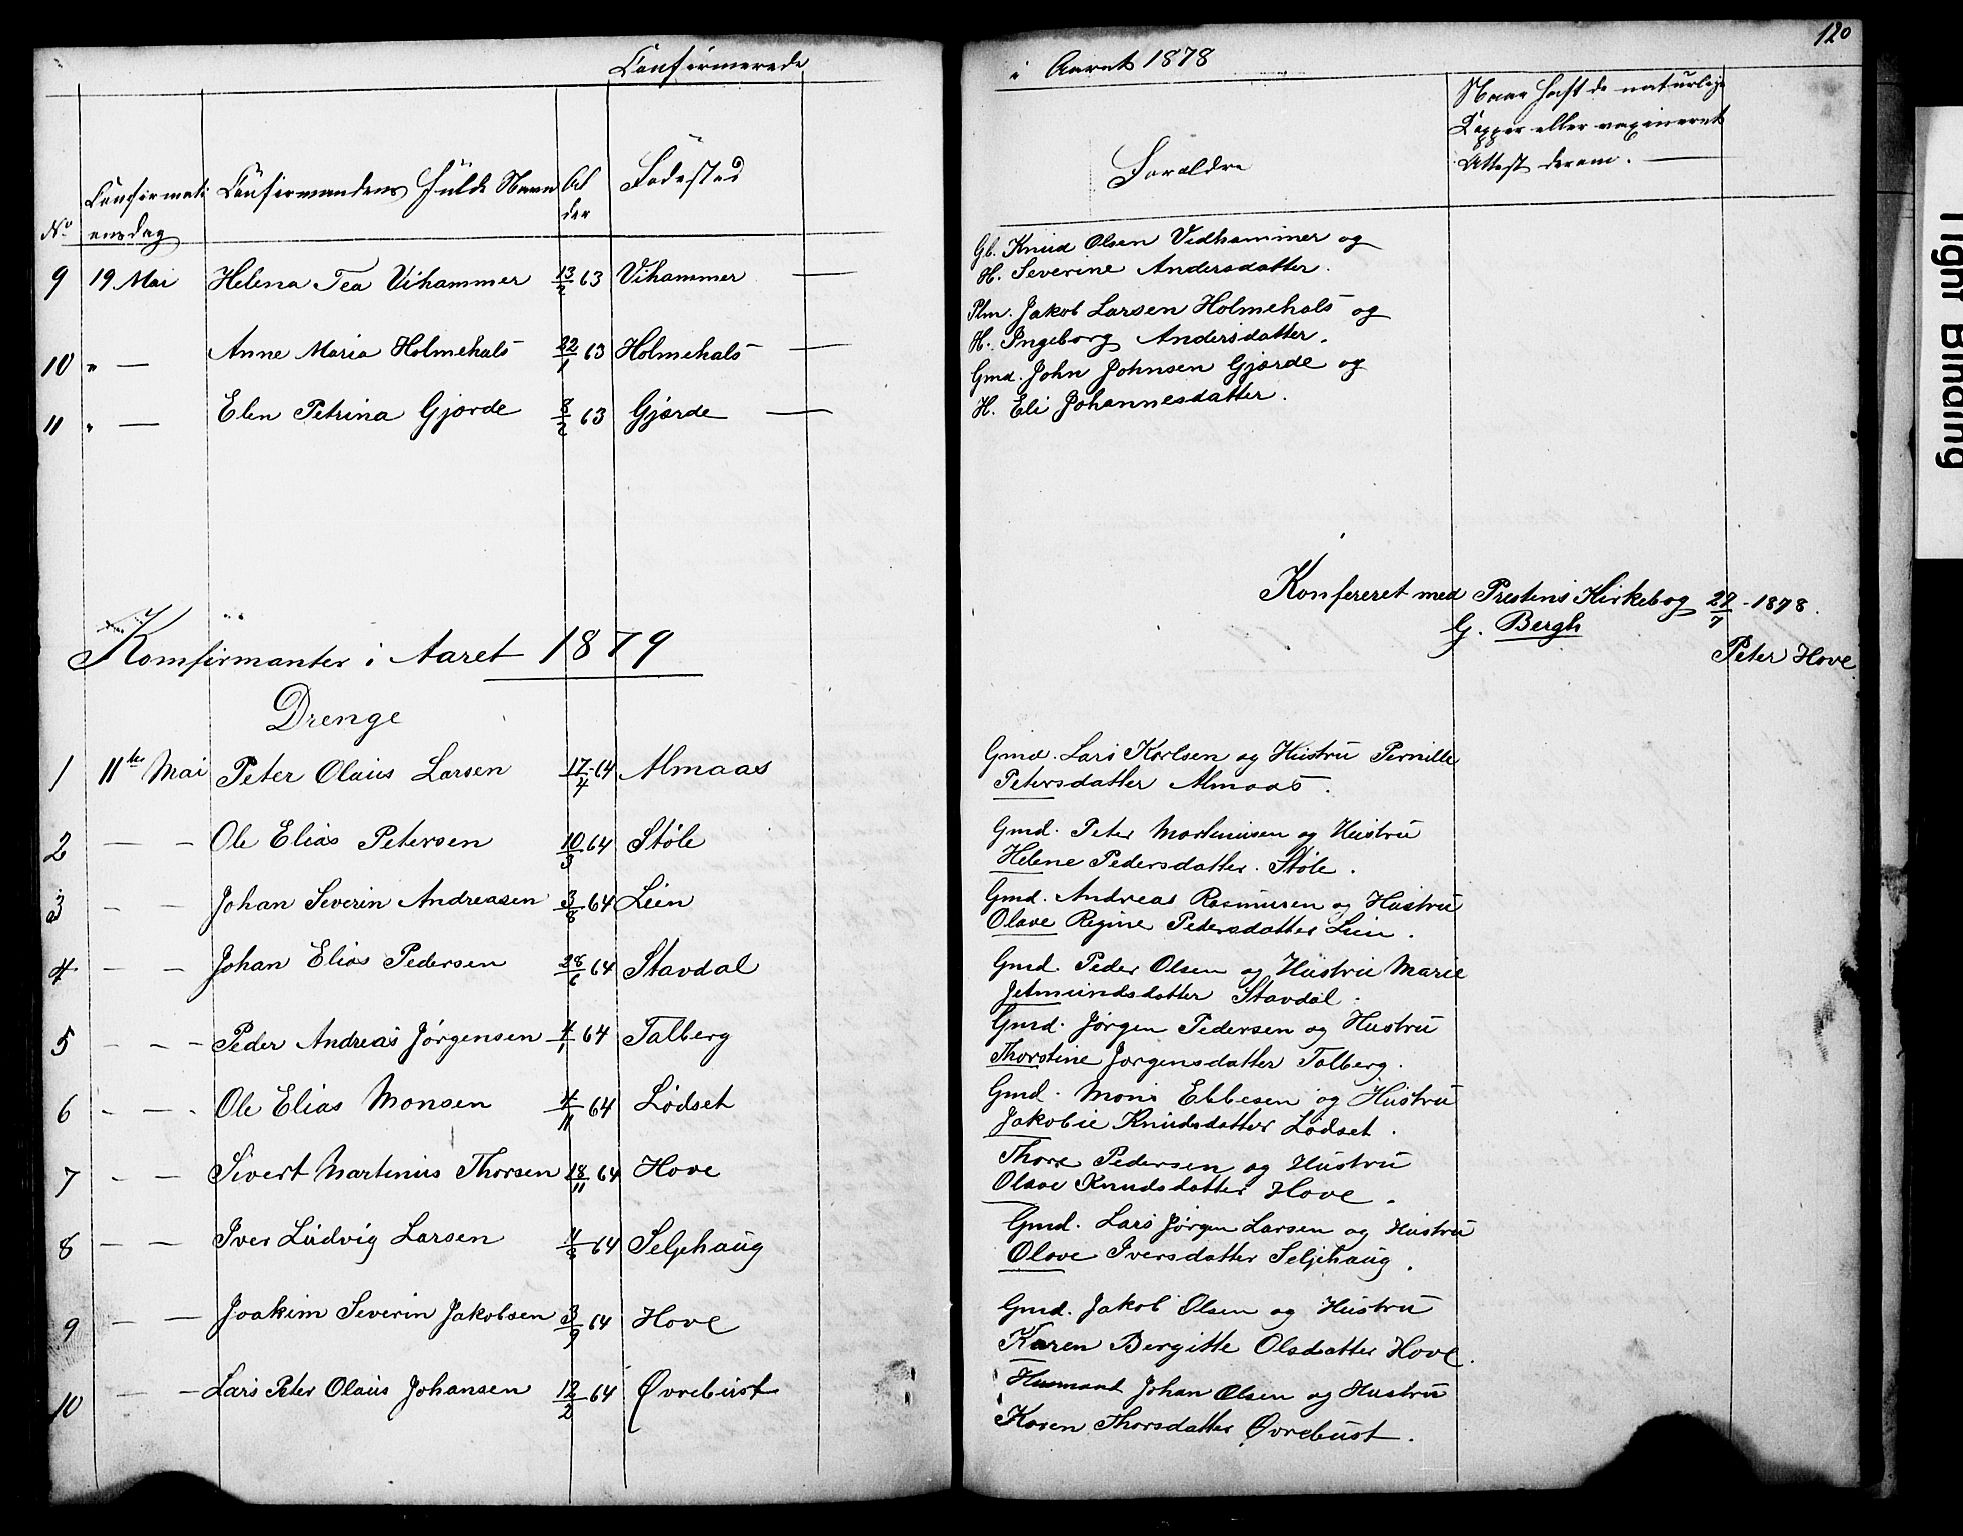 Confirmerede
i Aaret 1878
120
No
Confirmati
onsdag
Confirmandens Fulde Navn
Al
der
Fødested
Forældre
Naar haft de naturlige
Kopper eller vaxineret
Attest derom. —
9 19 Mai Helena Tea Vihammer 13/2 63 Vihammer —
Gb. Knud Olsen Vedhammer og
H. Severine Andersdatter.
10 " — Anne Maria Holmehals 22/1 63 Holmehals —
Plm. Jakob Larsen Holmehals og
H. Ingeborg Andersdatter.
11 " — Elen Petrina Gjørde 8/2 63 Gjørde —
Gmd. John Johnsen Gjørde og
H. Eli Johannesdatter.
Konfereret med Prestens Kirkebog 29/7 - 1878.
G. Bergh
Peter Hove
Komfirmanter i Aaret 1879
Drenge
1 11te Mai Peter Olaus Larsen 17/4 64 Almaas
Gmd. Lars Karlsen og Hustru Pernille
Petersdatter Almaas.
2 — — Ole Elias Petersen 10/3 64 Støle
Gmd. Peter Martinusen og Hustru
Helene Pedersdatter Støle.
3 — — Johan Severin Andreasen 3/8 64 Lien
Gmd. Andreas Rasmusen og Hustru
Olave Regine Pedersdatter Lien.
4 — — Johan Elias Pedersen 28/6 64 Stavdal
Gmd. Peder Olsen og Hustru Marie
Jetmundsdatter Stavdal.
5 — — — Peder Andreas Jørgensen 4/1 64 Talberg
Gmd. Jørgen Pedersen og Hustru
Thorstine Jørgensdatter Talberg.
6 — — — Ole Elias Monsen 4/11 64 Lødset
Gmd. Mons Ebbesen og Hustru
Jakobie Knudsdatter Lødset.
7 — — Sivert Martinus Thorsen 18/11 64 Hove
Thore Pedersen og Hustru
Olave Knudsdatter Hove.
8 — — Iver Ludvig Larsen 64 Seljehaug
Gmd. Lars Jørgen Larsen og Hustru
Olave Iversdatter Seljehaug.
9 — — Joakim Severin Jakobsen 3/9 64 Hove
Gmd. Jakob Olsen og Hustru
Karen Bergitte Olsdatter Hove.
10 — — Lars Peter Olaus Johansen 12/2 64 Øvrebust
Husmant Johan Olsen og Hustru
Karen Thorsdatter Øvrebust.
Tight Binding